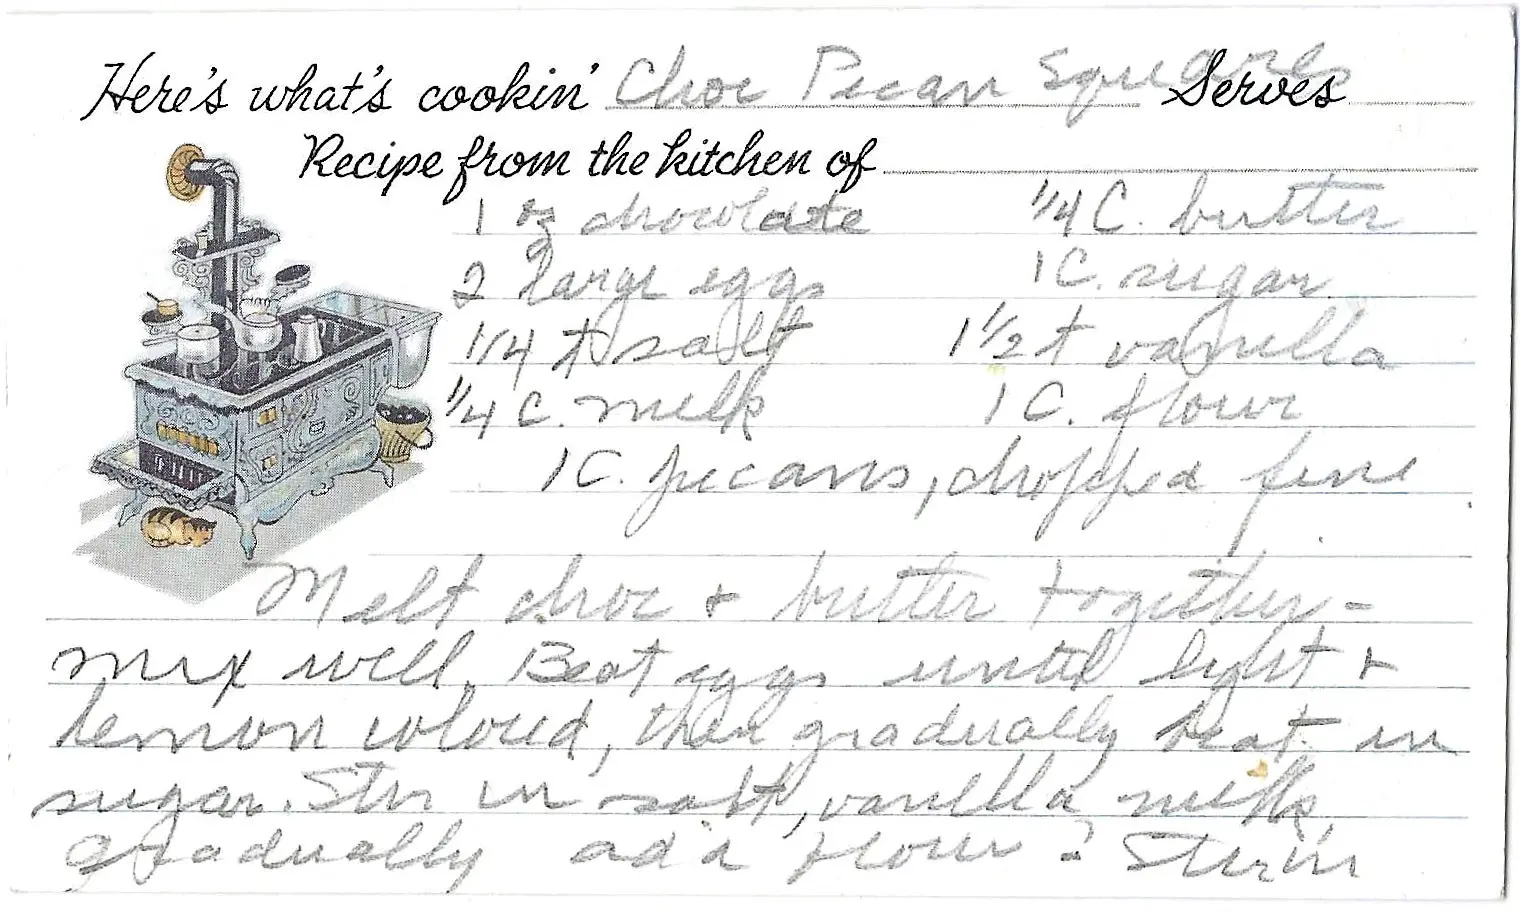 Here's what's cookin' Choc Pecan Squares Serves
Recipe from the kitchen of
1 oz chocolate 1/4 C. butter
2 large eggs 1 C. sugar
1/4 t salt 1 1/2 t vanilla
1/4 C. milk 1 C. flour
1 C. pecans, chopped fine
Melt choc + butter together -
mix well. Beat eggs until light +
lemon colored, then gradually beat in
sugar. Stir in salt, vanilla milk,
gradually add flour ? Stir in